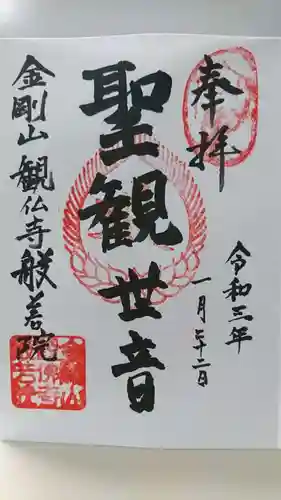 奉拝
令和三年
一月二十二日
聖観世音
金剛山観仏寺般若院